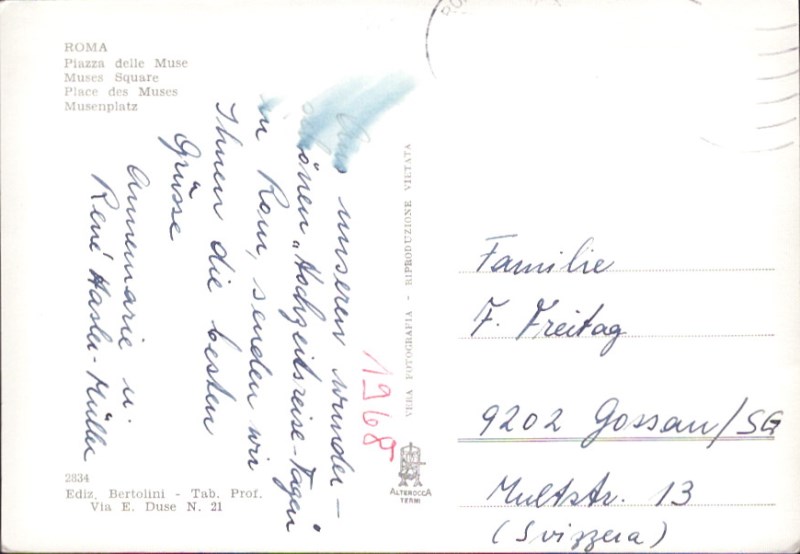 ROMA
Piazza delle Muse
Muses Square
Place des Muses
Musenplatz
Aus unseren wunder-
schönen „Hochzeitsreise-Tagen"
in Rom, senden wir
Ihnen die besten
Grüsse
Annemarie u.
René Hasler-Müller
1968
VERA FOTOGRAFIA - RIPRODUZIONE VIETATA
ALTEROCCA
TERNI
2834
Ediz. Bertolini - Tab. Prof.
Via E. Duse N. 21
Familie
F. Freitag
9202 Gossau/SG
Multstr. 13
(Svizzera)